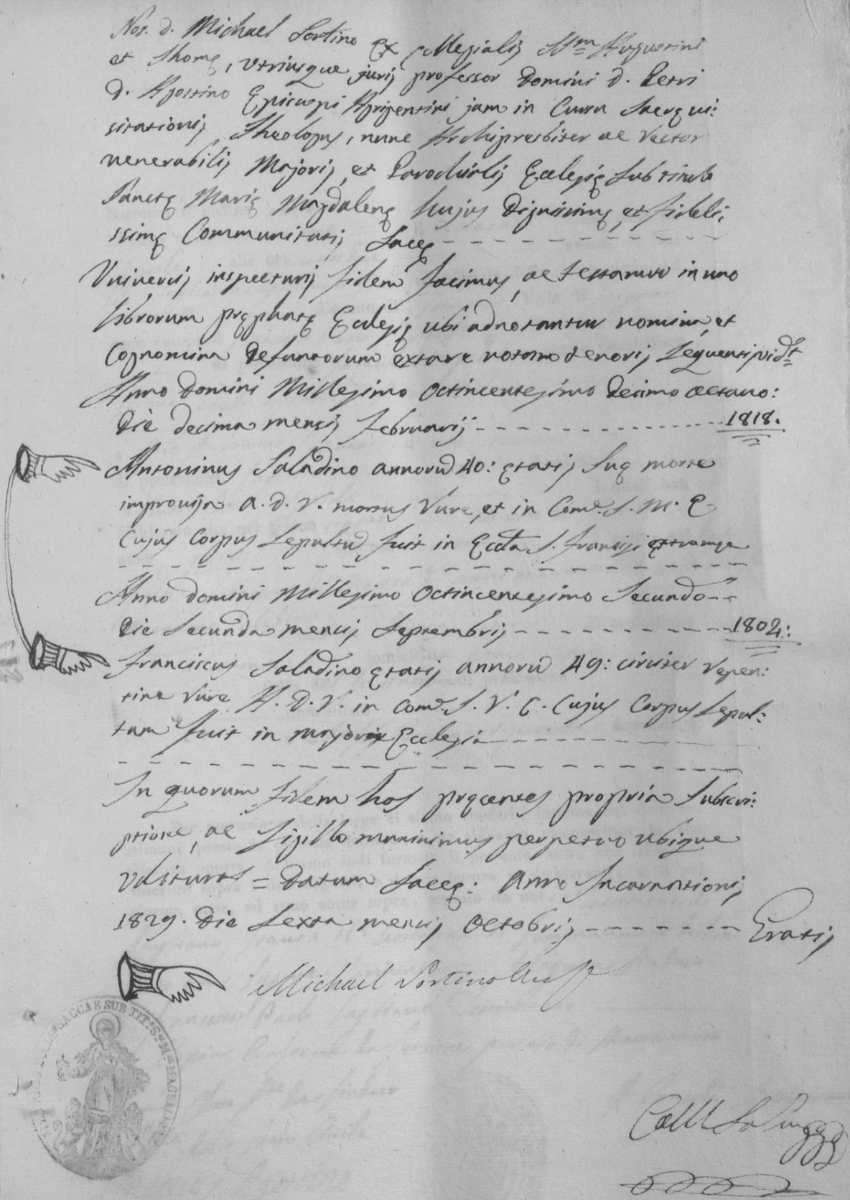 Nos. d. Michael Sortino Ex Collegialis SSm Augustini
et Thomę, utriusque juris professor Domini D. Petri
d. Agostino Episcopi Agrigentini jam in Cursu Sacrę vi:
sitationis, Theologus, nunc Archipresbiter ac Rector
venerabilis Majoris, et Parochialis Ecclesię sub titulo
Sanctę Marię Magdalenę hujus Dignissimę, et fideli:
ssimę Communitatis Saccę
Universis inspecturis fidem facimus, ac testamur in uno
librorum pręphatę Ecclesię ubi adnotantur nomina, et
Cognomina defunctorum extare notam tenoris sequentis vidt
Anno Domini Millesimo Octincentesimo Decimo octavo:
Die decima mensis februarij 1818.
Antoninus Saladino annorũ 40: ętatis suę morte
improvisa A. D. V. mortus vere, et in Come. S. M. E
Cujus Corpus sepultũ fuit in Eccla S. Francisci extra męnia
Anno Domini Millesimo Octincentesimo Secundo
Die Secunda mensis Septembris 1802:
Franciscus Saladino ętatis annorũ 49: circiter repen:
tine vere A. D. V. in Come. S. V. C. Cujus Corpus sepul:
tum fuit in majori Ecclesia
In quorum fidem has pręcentes propria subscri:
ptione, ac sigillo munivimus perpetuo ubique
valituras = Datum Saccę: Anno Incarnationis
1829. Die Sexta mensis Octobris Gratis
Michael Sortino
SACCAE SUB TIT. S. M. MAGDALENAE